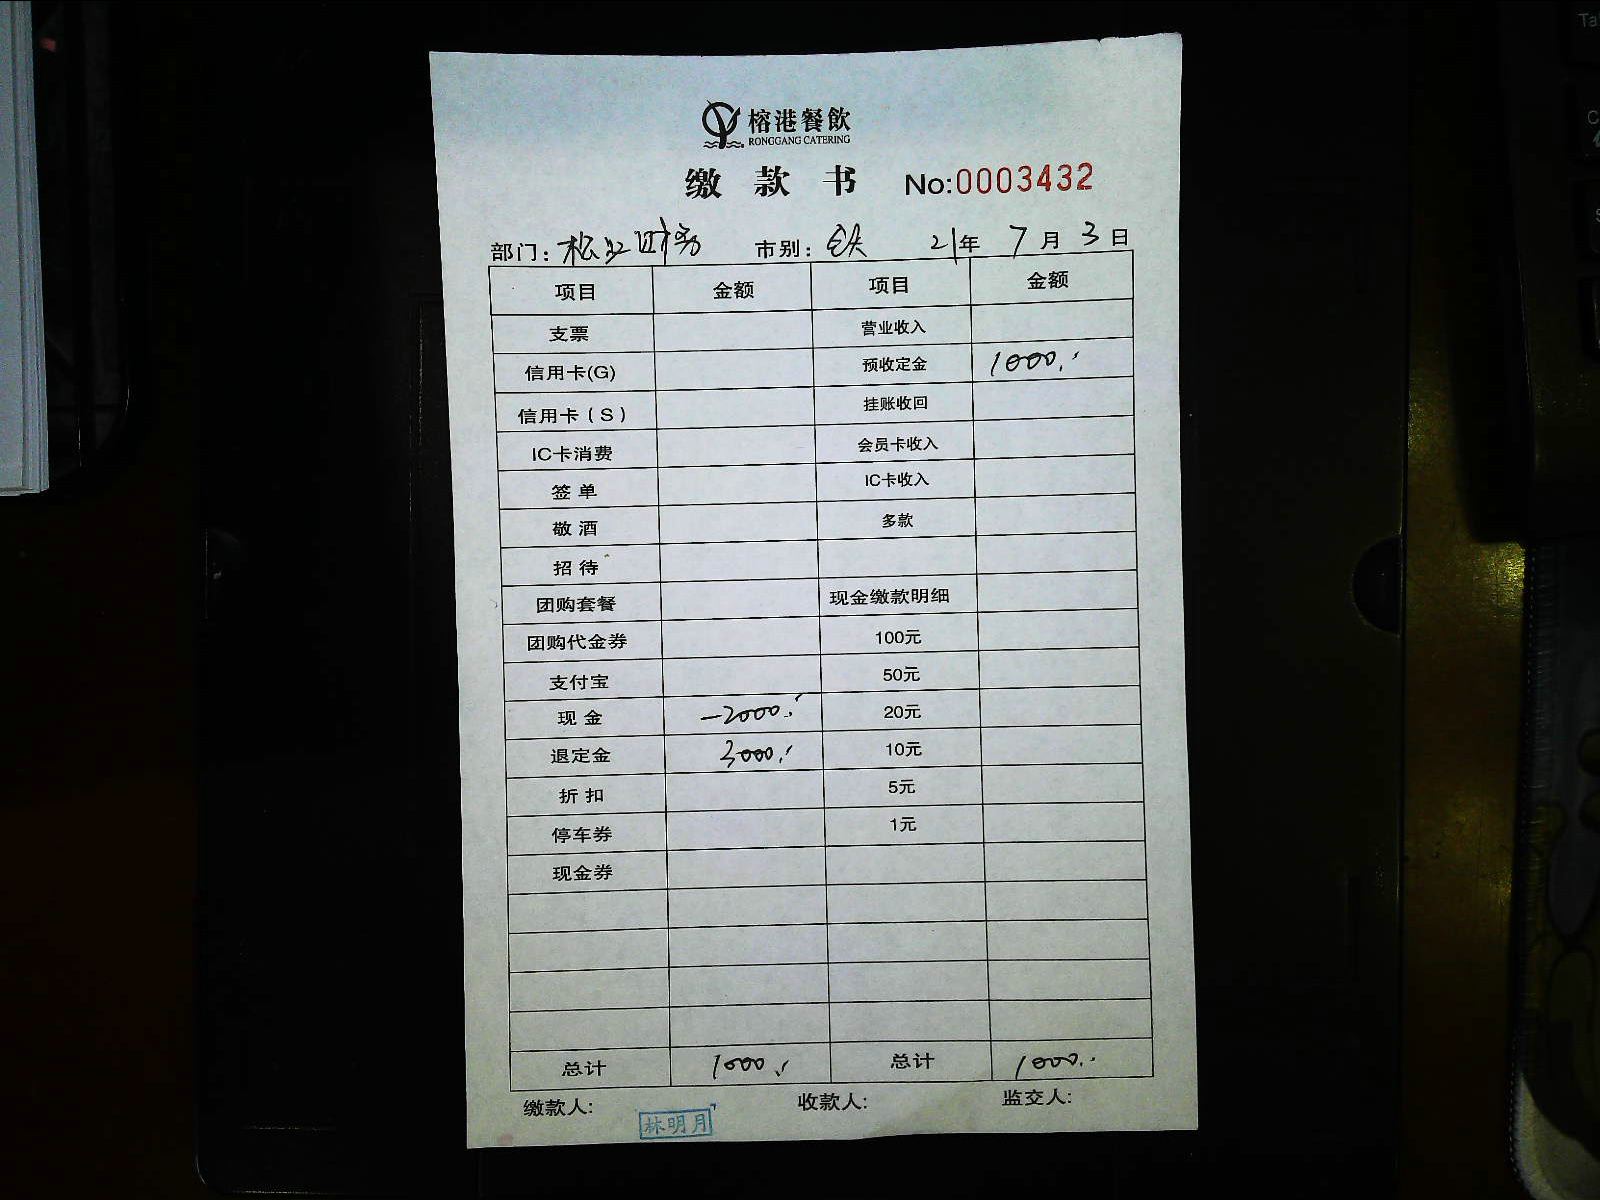 榕港餐飲
RONGGANG CATERING
缴款书 No:0003432
部门: 松江财务 市别: 21年 7月 3日
项目 金额 项目 金额
支票 营业收入
信用卡(G) 预收定金 1000.-
信用卡(S) 挂账收回
IC卡消费 会员卡收入
签单 IC卡收入
敬酒 多款
招待
团购套餐 现金缴款明细
团购代金券 100元
支付宝 50元
现金 -2000.- 20元
退定金 3000.- 10元
折扣 5元
停车券 1元
现金券
总计 1000.- 总计 1000.-
缴款人: 林明月 收款人: 监交人:
Ta